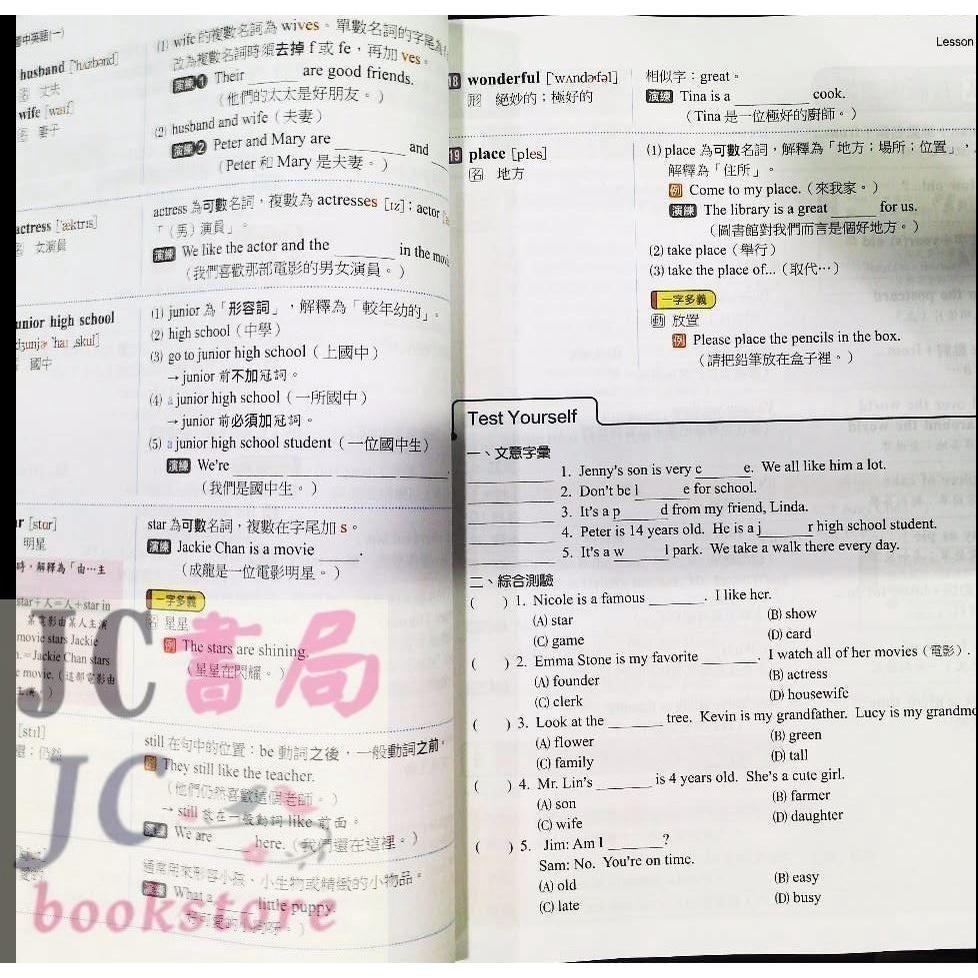 國中英語(一)
husband [ˋhʌzbənd]
名 丈夫
wife [waif]
名 妻子
(1) wife 的複數名詞為 wives。單數名詞的字尾為
改為複數名詞時須去掉 f 或 fe，再加 ves。
演練❶ Their ______ are good friends.
（他們的太太是好朋友。）
(2) husband and wife（夫妻）
演練❷ Peter and Mary are ______ and
（Peter 和 Mary 是夫妻。）
actress [ˋæktrɪs]
名 女演員
actress 為可數名詞，複數為 actresses [ɪz]；actor
「（男）演員」。
演練 We like the actor and the ______ in the movie
（我們喜歡那部電影的男女演員。）
junior high school
[ˋdʒunjɚ ˋhaɪ ˏskul]
國中
(1) junior 為「形容詞」，解釋為「較年幼的」。
(2) high school（中學）
(3) go to junior high school（上國中）
→ junior 前不加冠詞。
(4) a junior high school（一所國中）
→ junior 前必須加冠詞。
(5) a junior high school student（一位國中生）
演練 We're ______ ______ ______
（我們是國中生。）
[star]
明星
時，解釋為「由…主
star＋人＝人＋star in
某電影由某人主演
movie stars Jackie
n.＝Jackie Chan stars
e movie.（這部電影由
主演。）
star 為可數名詞，複數在字尾加 s。
演練 Jackie Chan is a movie ______.
（成龍是一位電影明星。）
一字多義
名 星星
例 The stars are shining.
（星星在閃耀。）
[stɪl]
還；仍然
still 在句中的位置：be 動詞之後，一般動詞之前。
例 They still like the teacher.
（他們仍然喜歡這個老師。）
→ still 放在一般動詞 like 前面。
演練 We are ______ here.（我們還在這裡。）
愛的
通常用來形容小孩、小生物或精緻的小物品。
演練 What a ______ little puppy.
JC書局
JC
bookstore
Lesson
18 wonderful [ˋwʌndɚfəl]
形 絕妙的；極好的
相似字：great。
演練 Tina is a ______ cook.
（Tina 是一位極好的廚師。）
19 place [ples]
名 地方
(1) place 為可數名詞，解釋為「地方；場所；位置」，
解釋為「住所」。
例 Come to my place.（來我家。）
演練 The library is a great ______ for us.
（圖書館對我們而言是個好地方。）
(2) take place（舉行）
(3) take the place of...（取代…）
一字多義
動 放置
例 Please place the pencils in the box.
（請把鉛筆放在盒子裡。）
Test Yourself
一、文意字彙
______ 1. Jenny's son is very c______e. We all like him a lot.
______ 2. Don't be l______e for school.
______ 3. It's a p______d from my friend, Linda.
______ 4. Peter is 14 years old. He is a j______r high school student.
______ 5. It's a w______l park. We take a walk there every day.
二、綜合測驗
( ) 1. Nicole is a famous ______. I like her.
(A) star (B) show
(C) game (D) card
( ) 2. Emma Stone is my favorite ______. I watch all of her movies（電影）.
(A) founder (B) actress
(C) clerk (D) housewife
( ) 3. Look at the ______ tree. Kevin is my grandfather. Lucy is my grandmo
(A) flower (B) green
(C) family (D) tall
( ) 4. Mr. Lin's ______ is 4 years old. She's a cute girl.
(A) son (B) farmer
(C) wife (D) daughter
( ) 5. Jim: Am I ______?
Sam: No. You're on time.
(A) old (B) easy
(C) late (D) busy